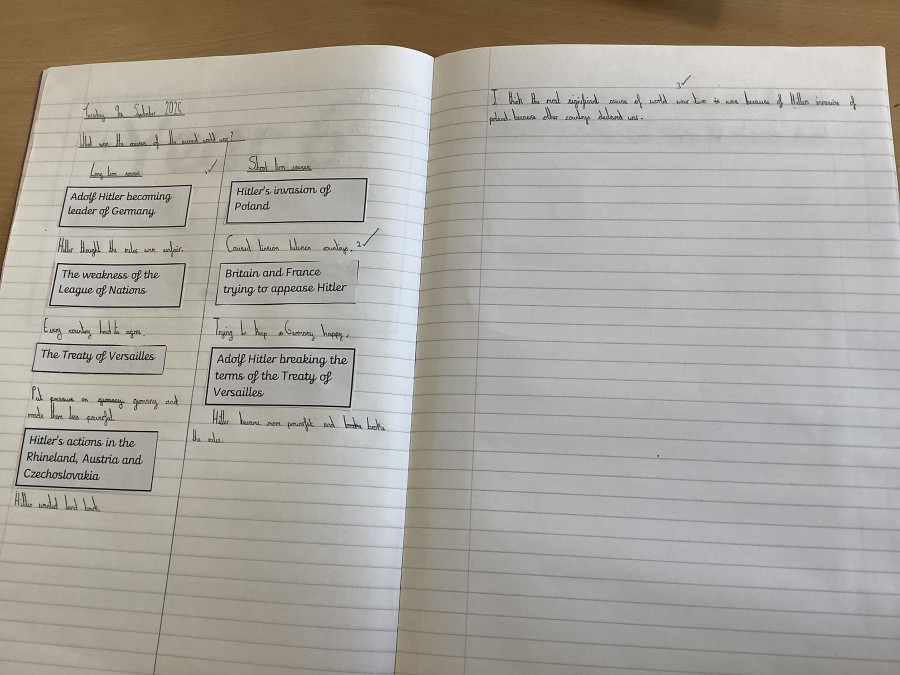 Tuesday 9th September 2025
What were the causes of the second world war?
Long term causes
Adolf Hitler becoming
leader of Germany
Hitler thought the rules were unfair.
The weakness of the
League of Nations
Every country had to agree.
The Treaty of Versailles
Put pressure on germany and
made them less powerful.
Hitler's actions in the
Rhineland, Austria and
Czechoslovakia
Hitler wanted land back.
Short term causes
Hitler's invasion of
Poland
Caused tension between countrys. 2
Britain and France
trying to appease Hitler
Trying to keep Germany happy.
Adolf Hitler breaking the
terms of the Treaty of
Versailles
Hitler became more powerful and broke
the rules.
3
I think the most significant cause of world war two is was because of Hitlers invasion of
poland. because other countrys declared war.